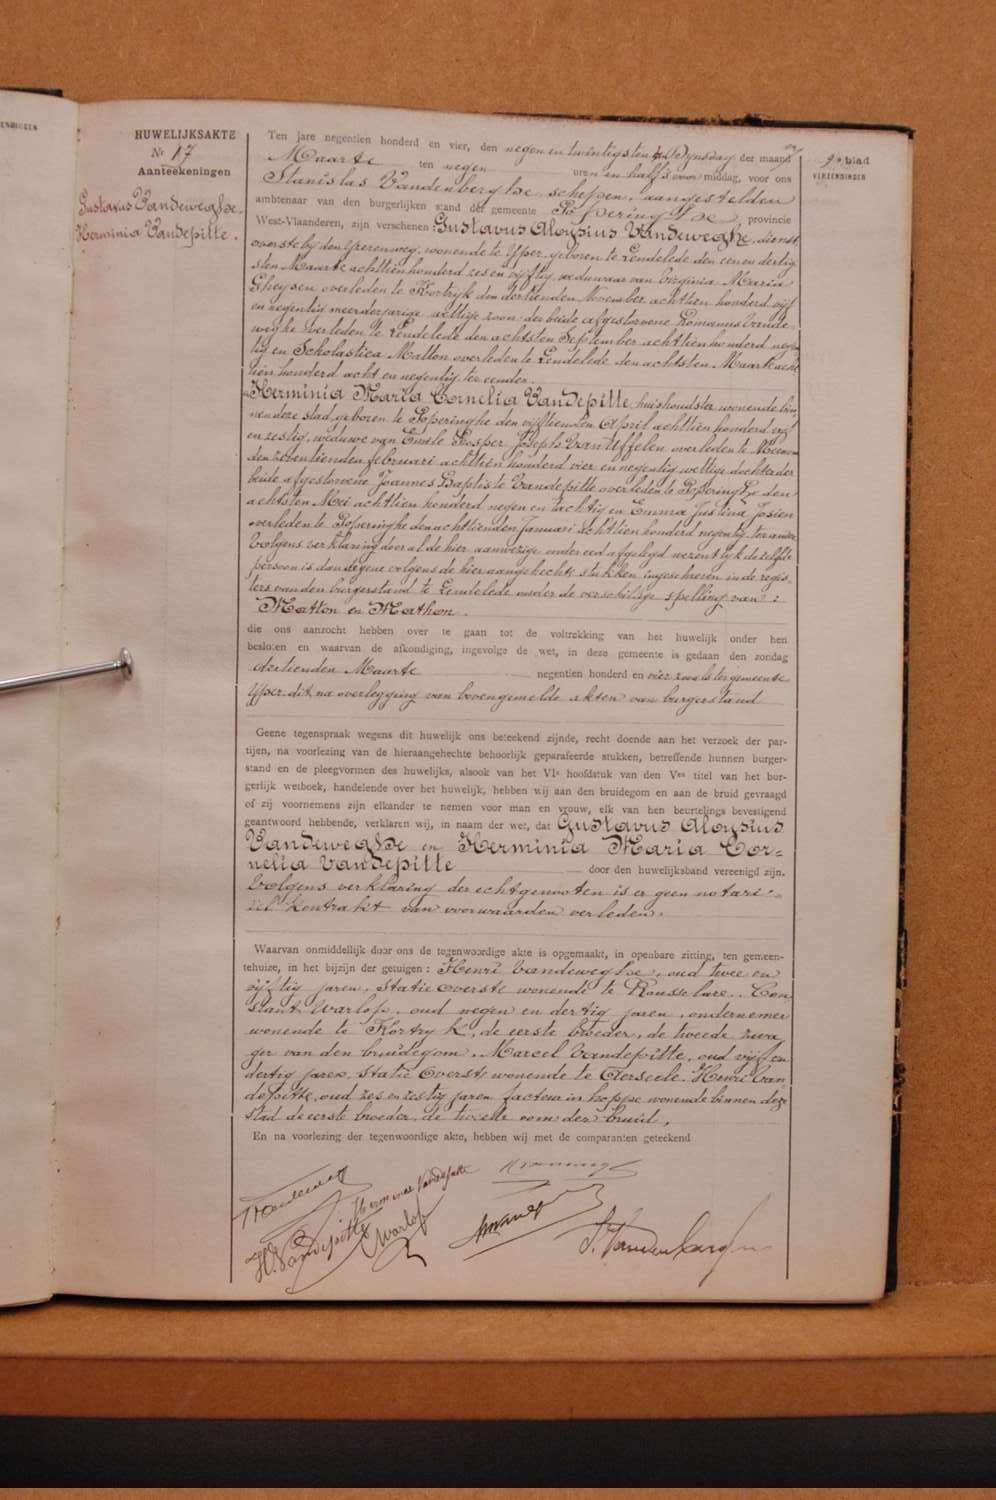 HUWELIJKSAKTE
Nr 17
Aanteekeningen
Gustavus Vandeweghe.
Herminia Vandepitte.
9e blad
VERZENDINGEN
Ten jare negentien honderd en vier, den negen en twintigsten Dynsdag der maand
Maarte ten negen uren en half 's voor middag, voor ons
Stanislas Vandenberghe, schepen, aangestelden
ambtenaar van den burgerlijken stand der gemeente Poperinghe, provincie
West-Vlaanderen, zijn verschenen: Gustavus Aloysius Vandeweghe, dienst
overste by den yzerenweg, wonende te Yper, geboren te Lendelede den eenendertig
sten Maarte achttien honderd zes en vyftig, weduwaar van Virginia Maria
Gheysen overleden te Kortryk den dertienden November achttien honderd vyf
en negentig meerderjarige wettige zoon der beide afgestorvene Romanus Vande
weghe overleden te Lendelede den achtsten September achttien honderd negen
tig en Scholastica Matton overleden te Lendelede den achtsten Maarte acht
tien honderd acht en negentig ter eender.
Herminia Maria Cornelia Vandepitte, huishoudster wonende bin
nen deze stad, geboren te Poperinghe den vyftienden April achttien honderd vyf
en zestig, weduwe van Emile Prosper Joseph Van Effelen overleden te Meenen
den zeventienden februari achttien honderd vier en negentig wettige dochter der
beide afgestorvene Joannes Baptiste Vandepitte overleden te Poperinghe den
achtsten Mei achttien honderd negen en tachtig en Emma Justina Josien
overleden te Poperinghe den achttienden Januari achttien honderd negentig ter andere
Volgens verklaring door al de hier aanwezige onder eed afgelegd wezentlyk dezelfde
persoon is dan degene volgens de hier aangehechte stukken ingeschreven in de regis
ters van den burgerstand te Lendelede onder de verschillige spelling van:
Matton en Mathon.
die ons aanzocht hebben over te gaan tot de voltrekking van het huwelijk onder hen
besloten en waarvan de afkondiging, ingevolge de wet, in deze gemeente is gedaan den zondag
dertienden Maarte negentien honderd en vier zoo als ter gemeente
Yper. dit na overlegging van bovengemelde akten van burgerstand
Geene tegenspraak wegens dit huwelijk ons beteekend zijnde, recht doende aan het verzoek der par-
tijen, na voorlezing van de hieraangehechte behoorlijk geparafeerde stukken, betreffende hunnen burger-
stand en de pleegvormen des huwelijks, alsook van het VIe hoofdstuk van den Ven titel van het bur-
gerlijk wetboek, handelende over het huwelijk, hebben wij aan den bruidegom en aan de bruid gevraagd
of zij voornemens zijn elkander te nemen voor man en vrouw, elk van hen beurtelings bevestigend
geantwoord hebbende, verklaren wij, in naam der wet, dat Gustavus Aloysius
Vandeweghe en Herminia Maria Cor=
nelia Vandepitte door den huwelijksband vereenigd zijn.
Volgens verklaring der echtgenooten is er geen notari=
ëel kontrakt van voorwaarden verleden.
Waarvan onmiddellijk door ons de tegenwoordige akte is opgemaakt, in openbare zitting, ten gemeen-
tehuize, in het bijzijn der getuigen: Henri Vandeweghe, oud twee en
vyftig jaren, statie overste wonende te Rousselare. Con
stant Warlop, oud negen en dertig jaren, ondernemer
wonende te Kortryk, de eerste broeder, de tweede zwa
ger van den bruidegom. Marcel Vandepitte, oud vyf en
dertig jaren, statie overste wonende te Aerseele. Henri Van
depitte, oud zes en zestig jaren facteur in hoppe wonende binnen deze
stad de eerste broeder, de tweede oom der bruid.
En na voorlezing der tegenwoordige akte, hebben wij met de comparanten geteekend
Herminie Vandepitte
H. Vandepitte
Warlop
S. Vandenberghe